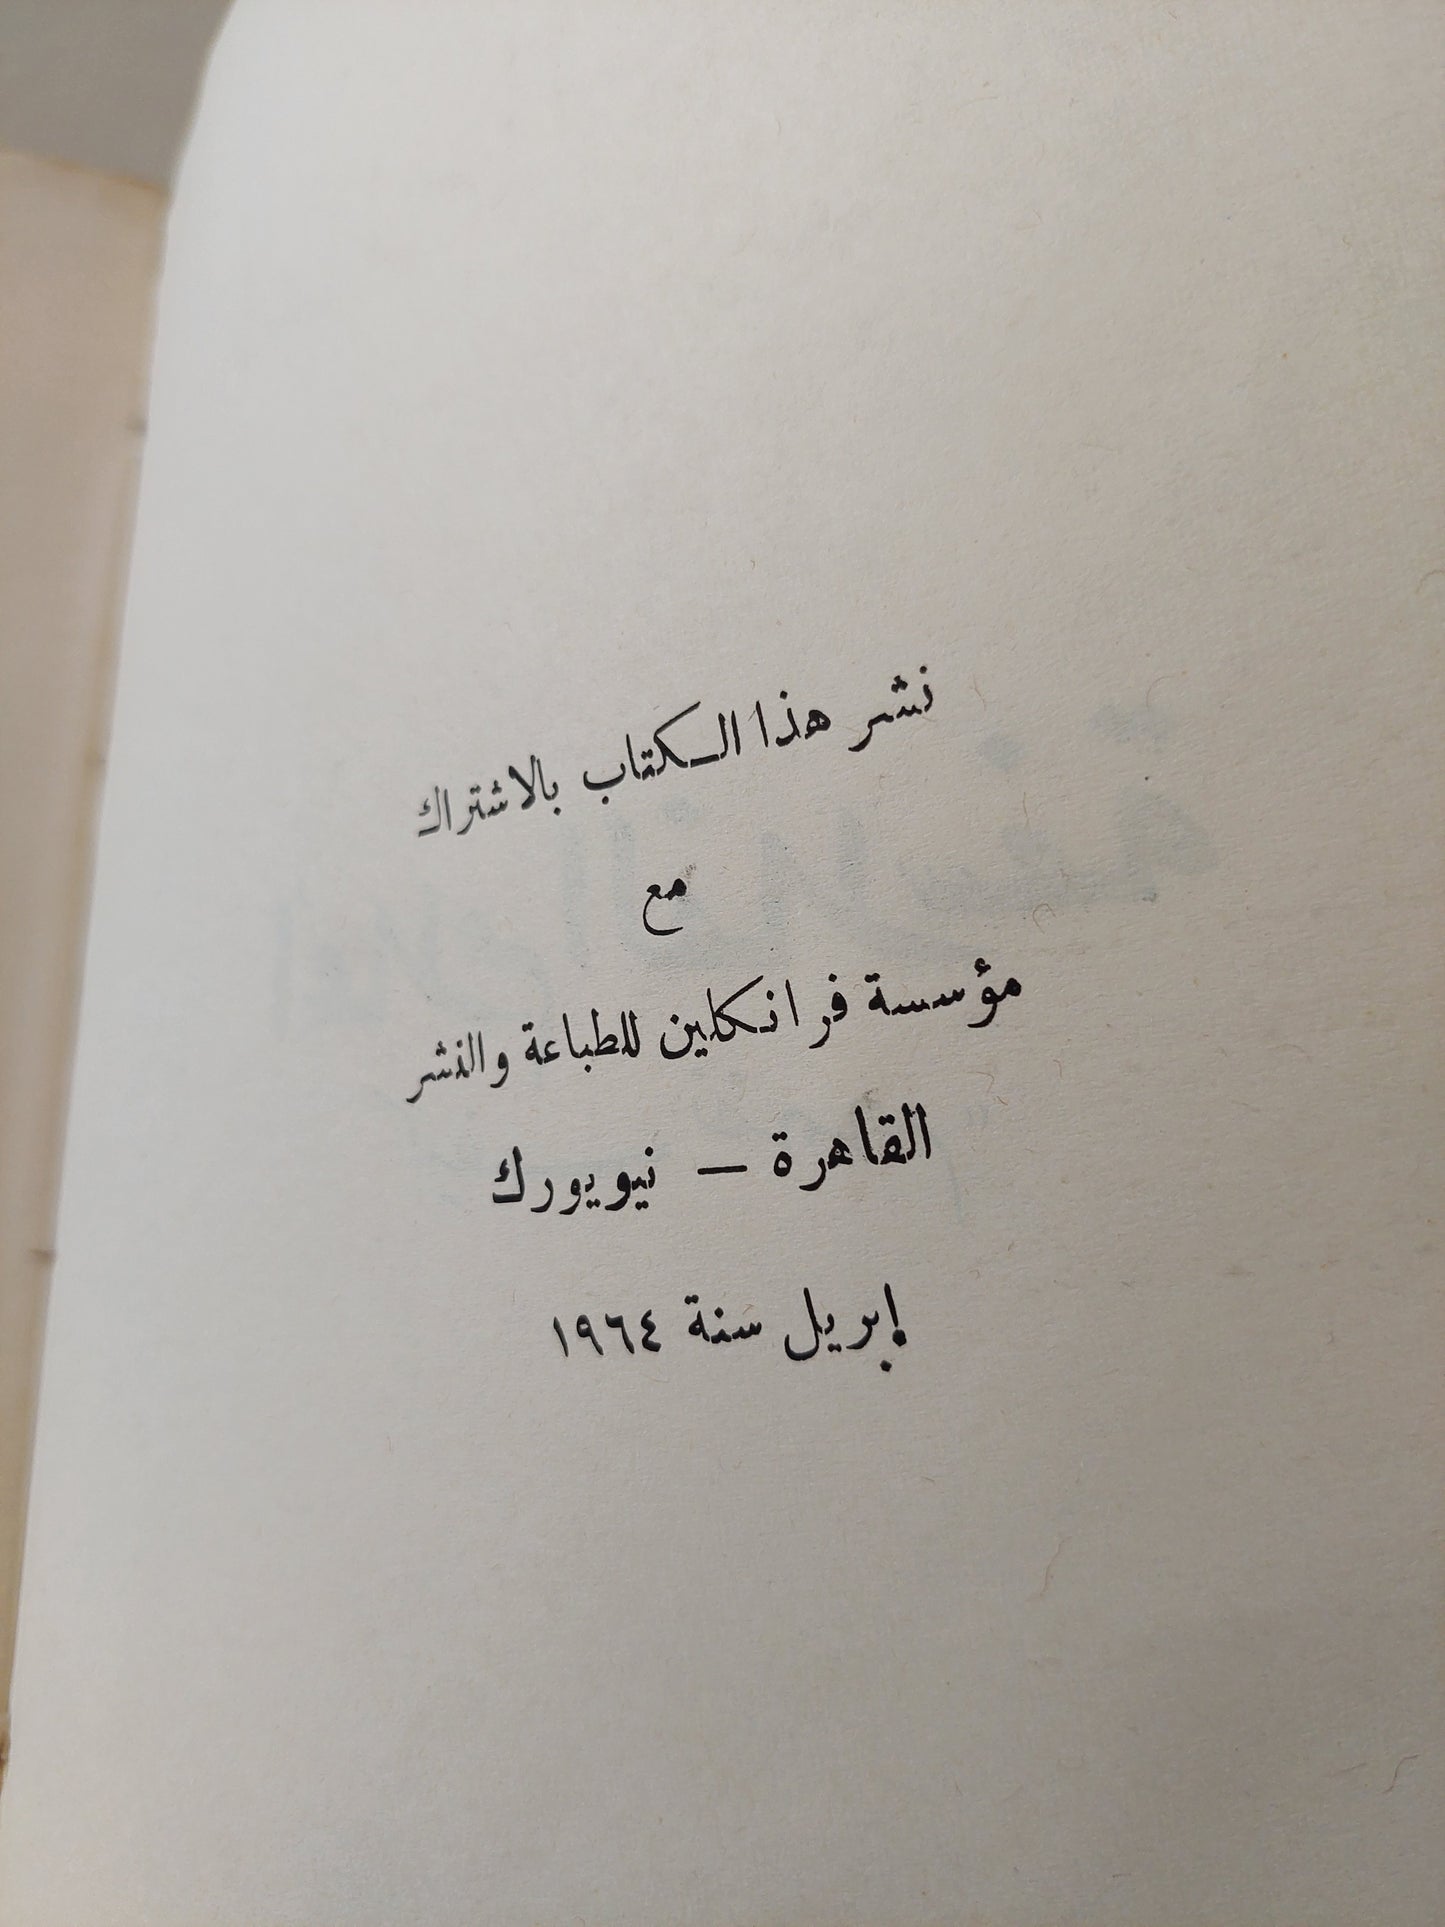 نشر هذا الكتاب بالاشتراك
مع
مؤسسة فرانكلين للطباعة والنشر
القاهرة — نيويورك
إبريل سنة ١٩٦٤